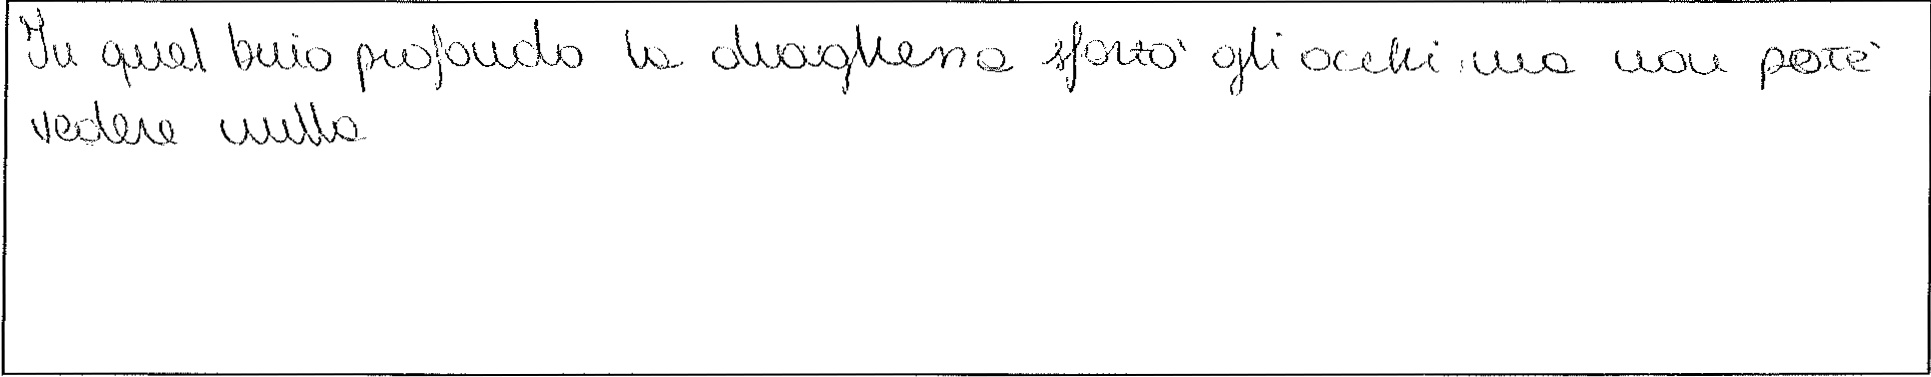 In quel buio profondo la draghessa sforzò gli occhi, ma non poté
vedere nulla